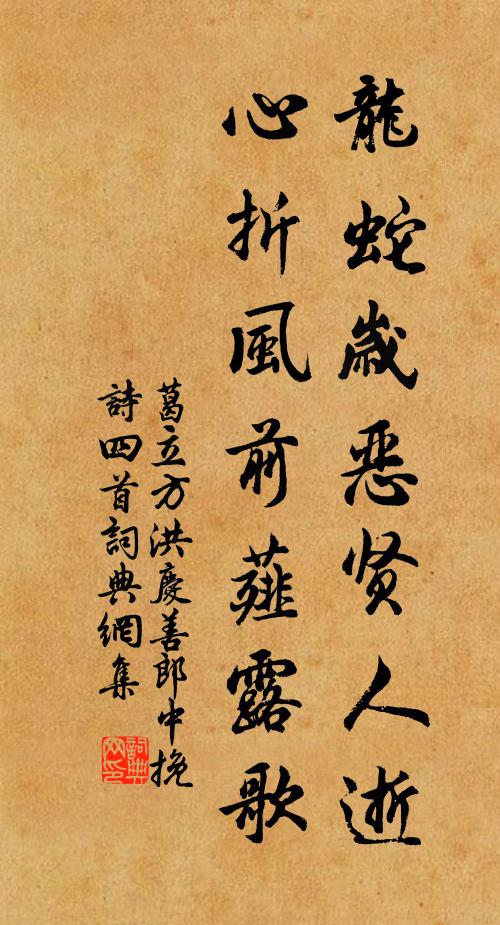 龍蛇歲惡贤人逝
心折風前薤露歌
葛立方洪慶善郎中挽
詩四首詞典網集
詞典网印